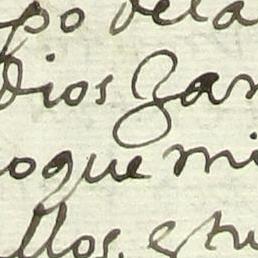 po dela
dios Zan
oque mi
llos. estu